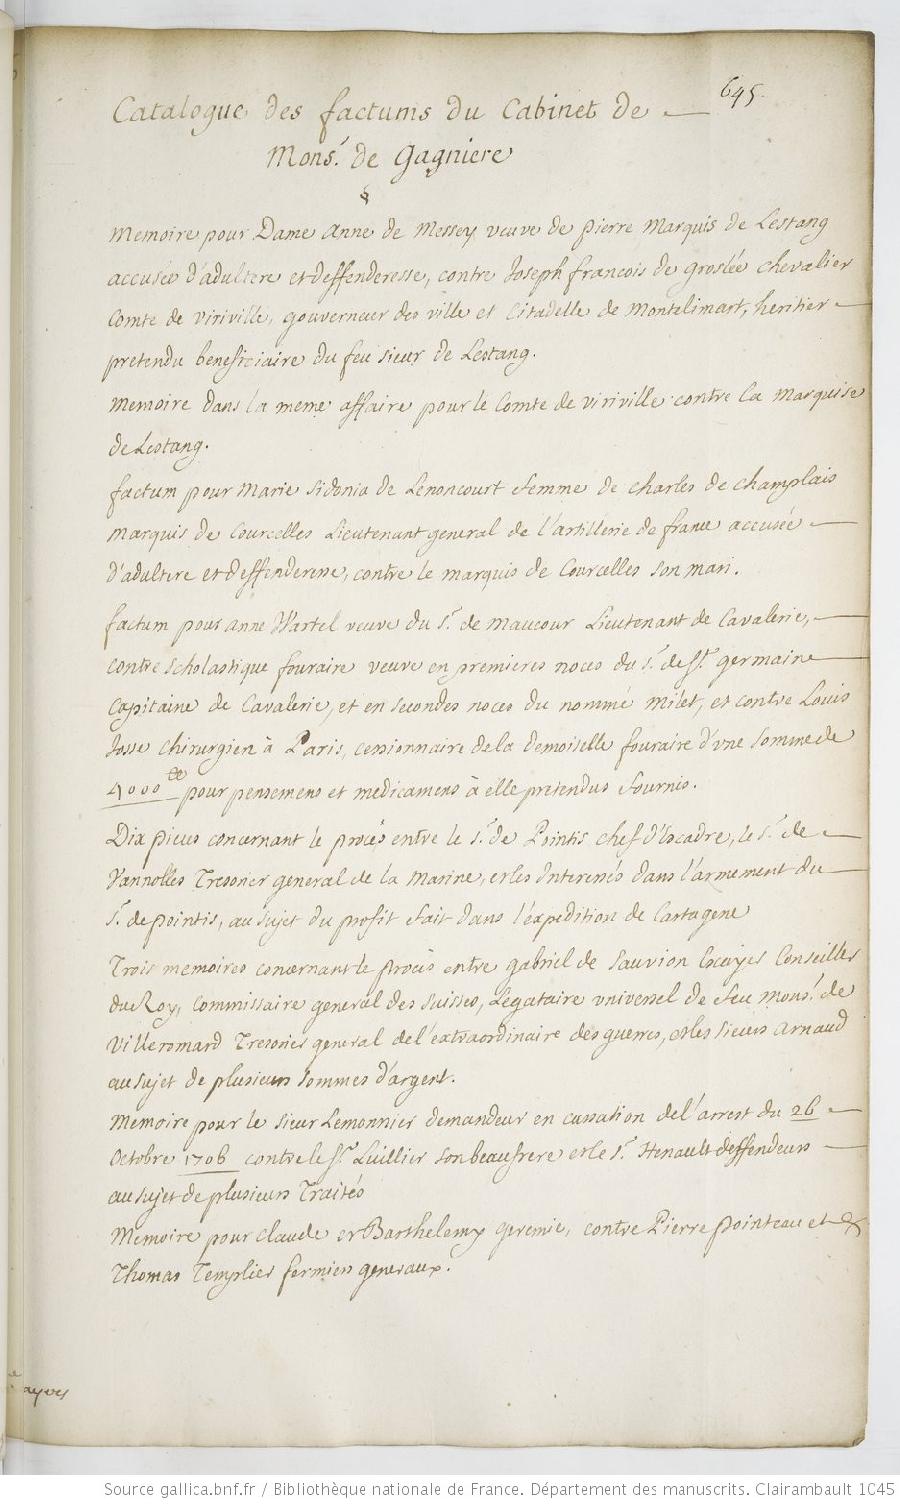 645.
Catalogue des factums du Cabinet de
Mons.r de Gagniere
Memoire pour Dame Anne de Messey veuve de Pierre Marquis de Lestang
accusée d'adultere et deffenderesse, contre Joseph francois de groslée chevalier
Comte de viriville, gouverneur des ville et Citadelle de Montelimart, heritier
pretendu beneficiaire du feu sieur de Lestang.
Memoire dans la meme affaire pour le Comte de viriville contre la Marquise
de Lestang.
factum pour Marie Sidonia de Lenoncourt femme de charles de champlais
marquis de Courcelles Lieutenant general de l'artillerie de france accusée
d'adultere et deffenderesse, contre le marquis de Courcelles son mari.
factum pour anne Hartel veuve du S.r de maucour Lieutenant de Cavalerie,
contre scholastique fouraire veuve en premieres noces du S.r de St. germaine
Capitaine de Cavalerie, et en secondes noces du nommé milet, et contre Louis
Josse chirurgien à Paris, cessionnaire de la demoiselle fouraire d'vne somme de
4000 tt pour pensemens et medicamens à elle pretendus fournis.
Dix pieces concernant le procés entre le S.r de Pointis chef d'Escadre, le S.r de
Vannolles Tresorier general de la Marine, et les Interessés dans l'armement du
S.r de pointis, au sujet du profit fait dans l'expedition de Cartagene
Trois memoires concernant le procés entre gabriel de Sauvion Ecuyer Conseiller
du Roy, Commissaire general des Suisses, Legataire vniversel de feu mons.r de
Villeromard Tresorier general de l'extraordinaire des guerres, et les sieurs Arnaud
au sujet de plusieurs sommes d'argent.
Memoire pour le sieur Lemonnier demandeur en cassation de l'arrest du 26
Octobre 1706 contre le Sr. Luillier son beaufrere et le S.r Henault deffendeurs
au sujet de plusieurs Traités
Memoire pour claude et Barthelemy geremie, contre Pierre pointeau et
Thomas Templier fermiers generaux.
ayves
Source gallica.bnf.fr / Bibliothèque nationale de France. Département des manuscrits. Clairambault 1045